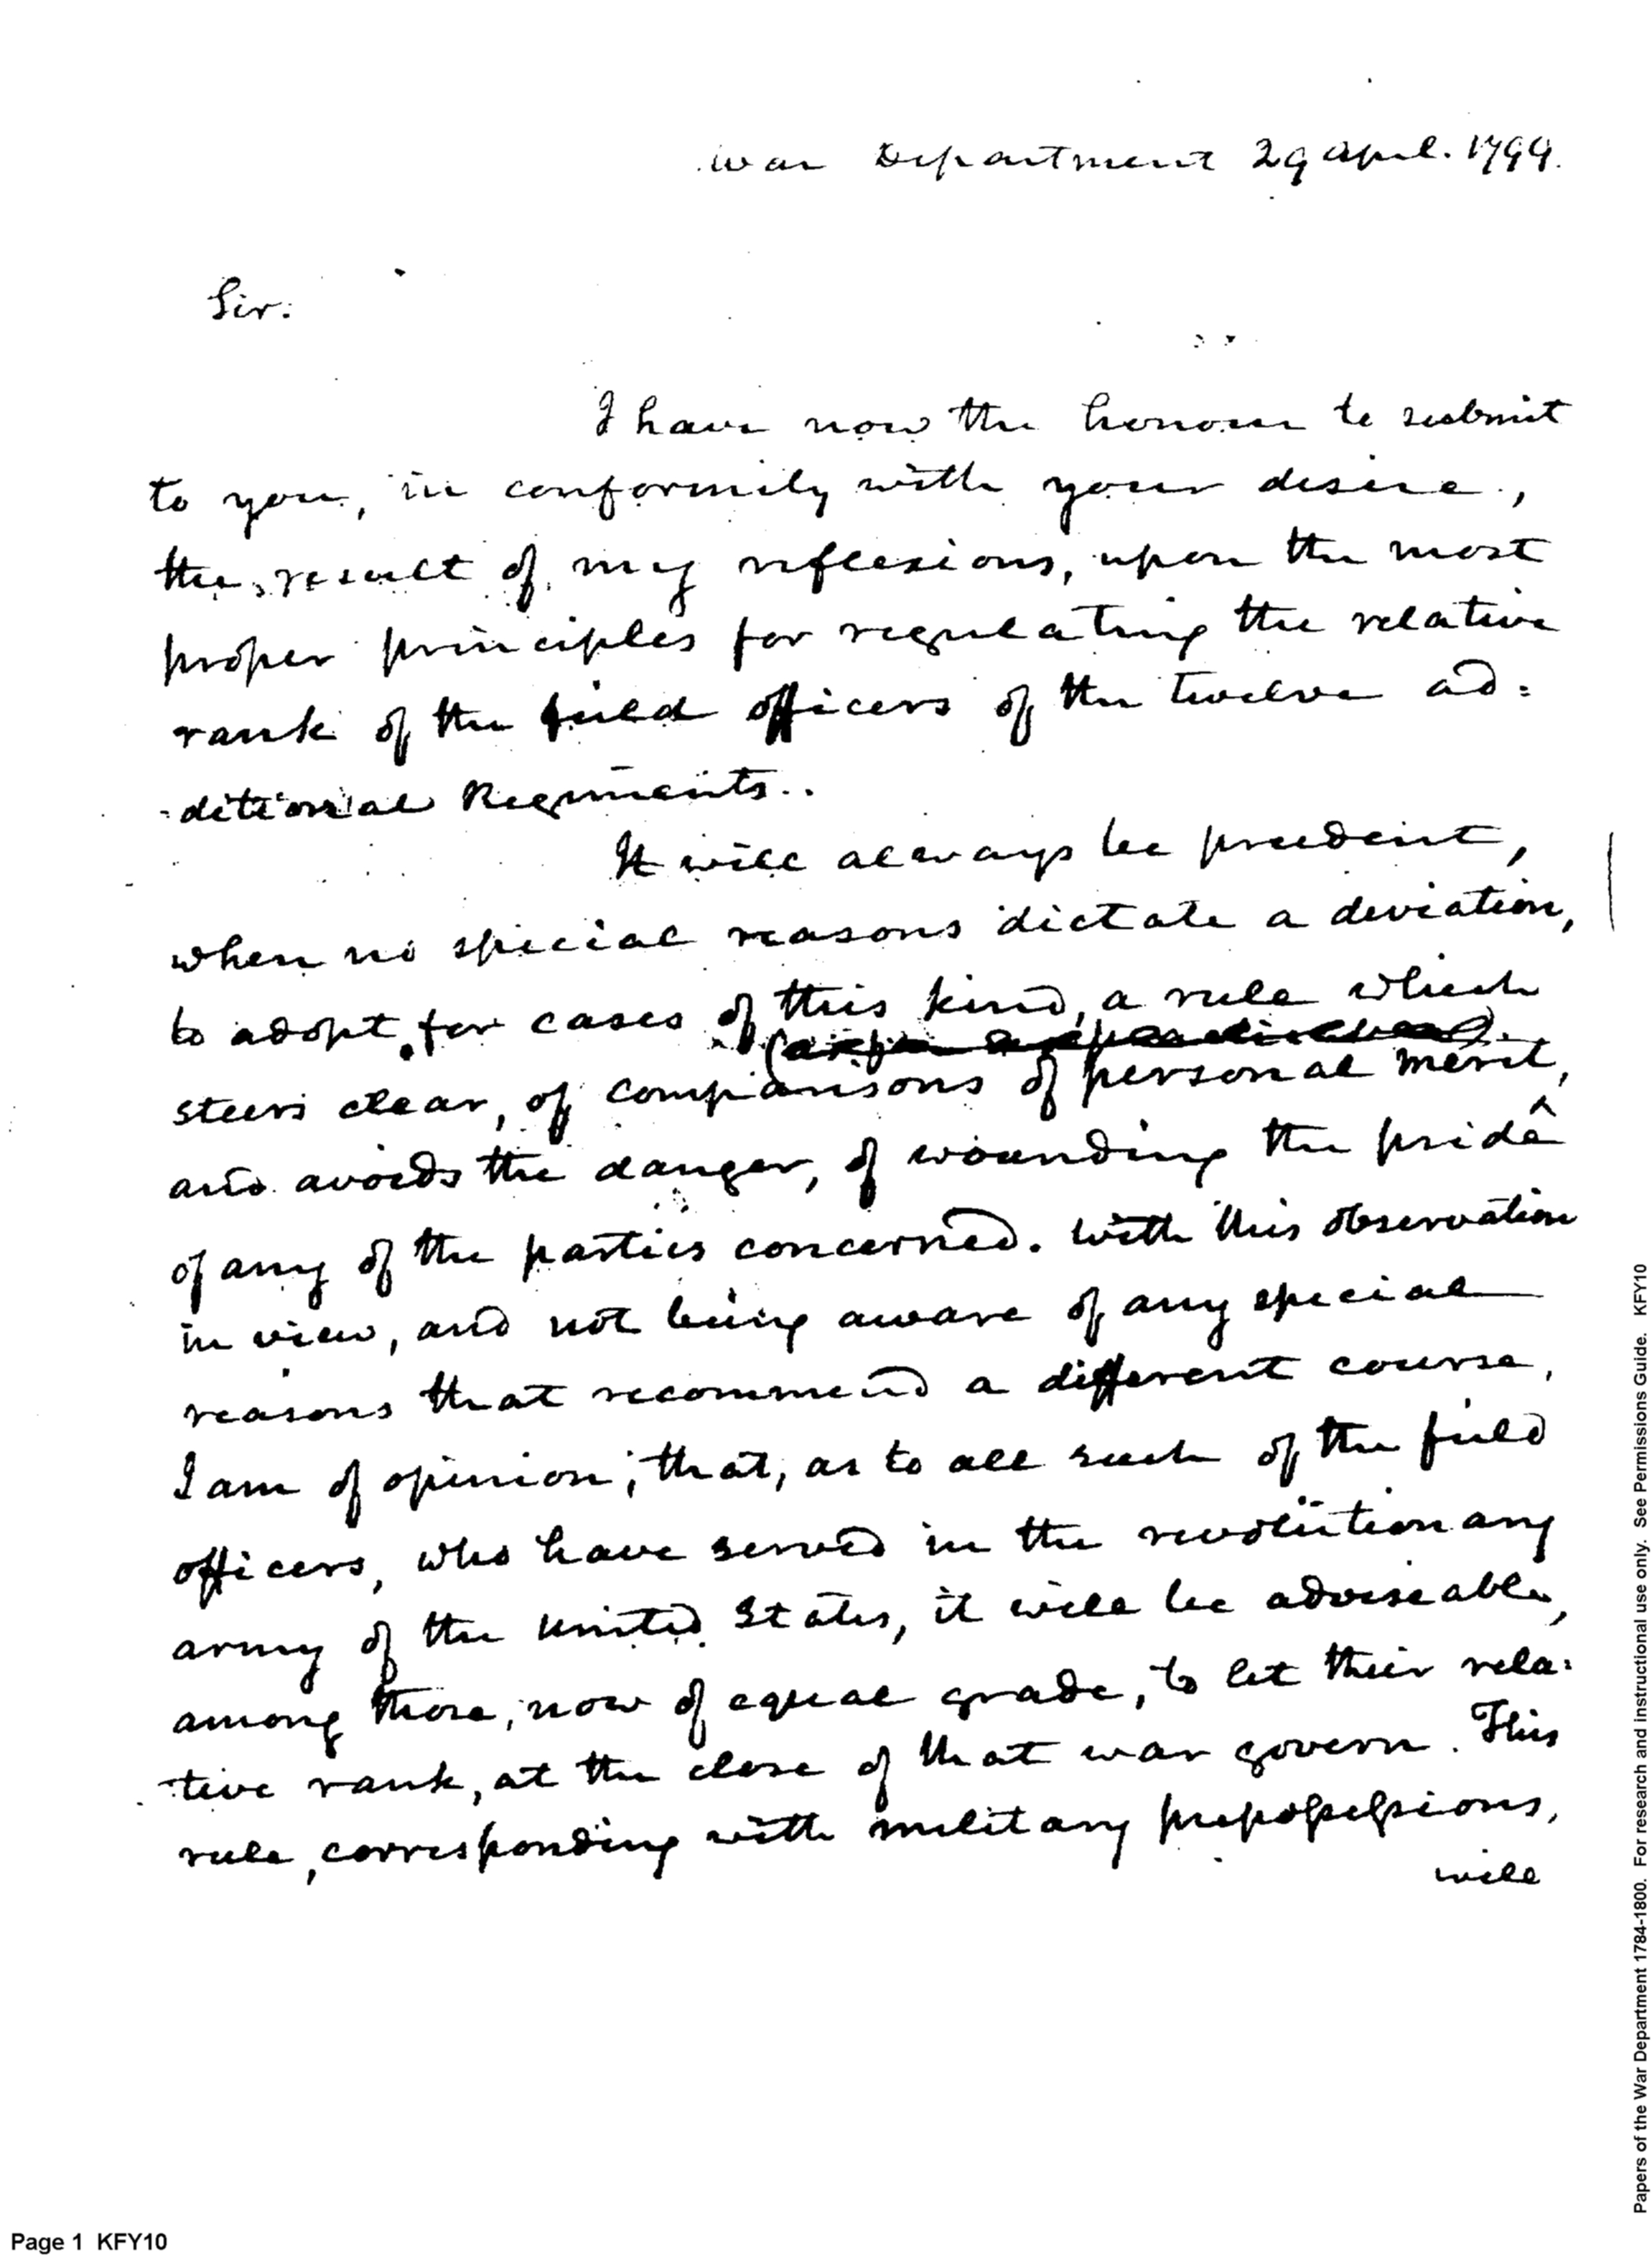 War Department 29 April. 1799.
Sir.
I have now the honour to submit
to you, in conformity with your desire,
the result of my reflexions, upon the most
proper principles for regulating the relative
rank of the field officers of the twelve ad=
-ditional Regiments..
It will always be prudent,
when no special reasons dictate a deviation,
to adopt, for cases of this kind, a rule which
steers clear, of comparisons of personal merit,
and avoids the danger, of wounding the pride
of any of the parties concerned. With this observation
in view, and not being aware of any special
reasons that recommend a different course,
I am of opinion, that, as to all such of the field
officers, who have served in the revolutionary
army of the United States, it will be adviseable,
among those, now of equal grade, to let their rela=
-tive rank, at the close of that war govern. This
rule, corresponding with military prepossessions,
will
Page 1 KFY10
Papers of the War Department 1784-1800. For research and instructional use only. See Permissions Guide. KFY10